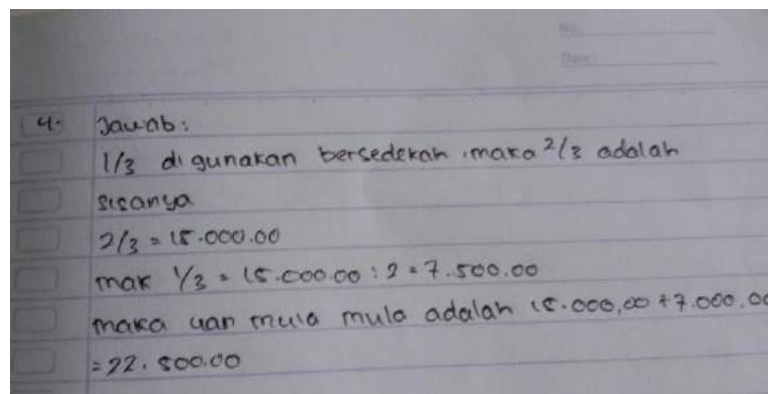 No.
Date
4. Jawab:
1/3 digunakan bersedekah, maka 2/3 adalah
sisanya
2/3 = 15.000.00
mak 1/3 = 15.000.00 : 2 = 7.500.00
maka uan mula mula adalah 15.000,00 + 7.000.00
= 22.500.00